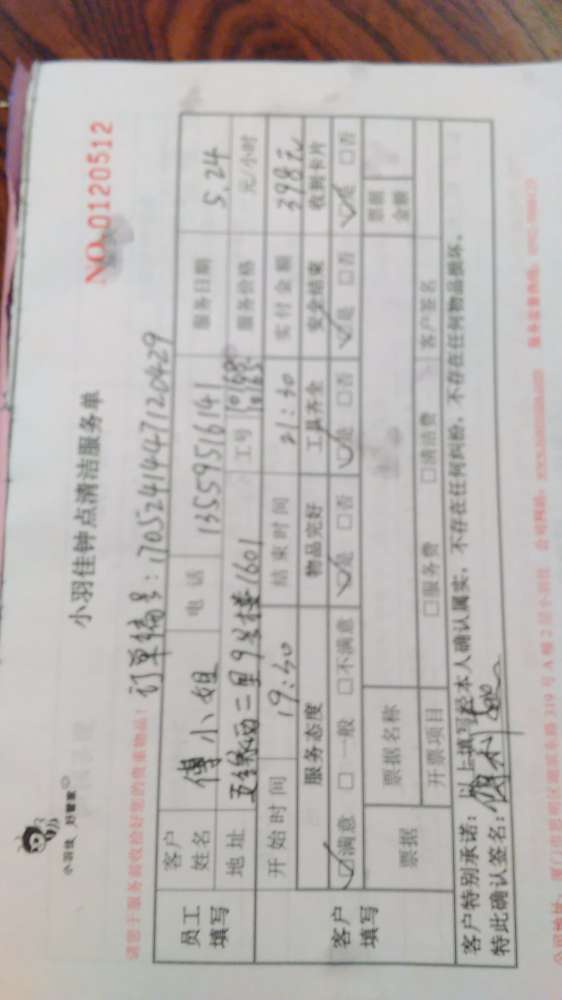 小羽佳 好管家
小羽佳钟点清洁服务单
NO.0120512
请您于服务前收拾好您的贵重物品!
订单编号:1705241447120429
员工填写
客户姓名 傅小姐 电话 13559516141 服务日期 5.24
地址 二里9号楼1601 工号 服务价格 元/小时
开始时间 19:30 结束时间 21:30 实付金额 398元
客户填写
服务态度 物品完好 工具齐全 安全结束 收到卡片
☑满意 □一般 □不满意 ☑是 □否 ☑是 □否 ☑是 □否 ☑是 □否
票据 票据名称 票据金额
开票项目 □服务费 □清洁费 客户签名
客户特别承诺:以上填写经本人确认属实,不存在任何纠纷,不存在任何物品损坏。
特此确认签名:
公司地址:厦门市思明区 319号A幢2层小羽佳 公司网站: 服务监督热线: